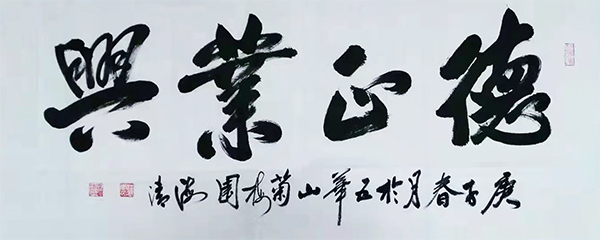 德正業興
庚子春月於五華山菊梅園海清